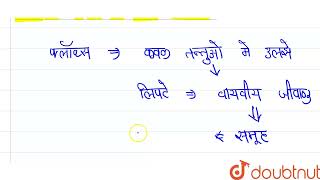 फ्लॉक्स ⇒ कवक तन्तुओ मे उलझे
↓
लिपटे ⇒ वायवीय जीवाणु
⇓
के समूह
doubtnut